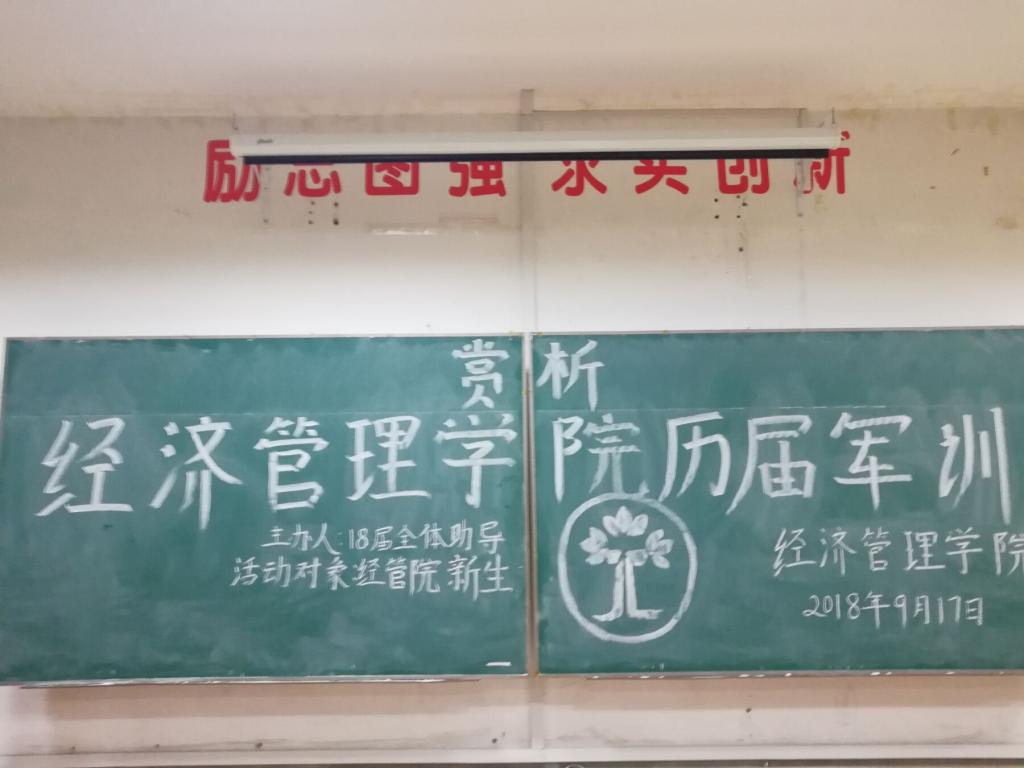 励志图强 求实创新
赏析
经济管理学院历届军训
主办人:18届全体助导
活动对象:经管院新生
经济管理学院
2018年9月17日